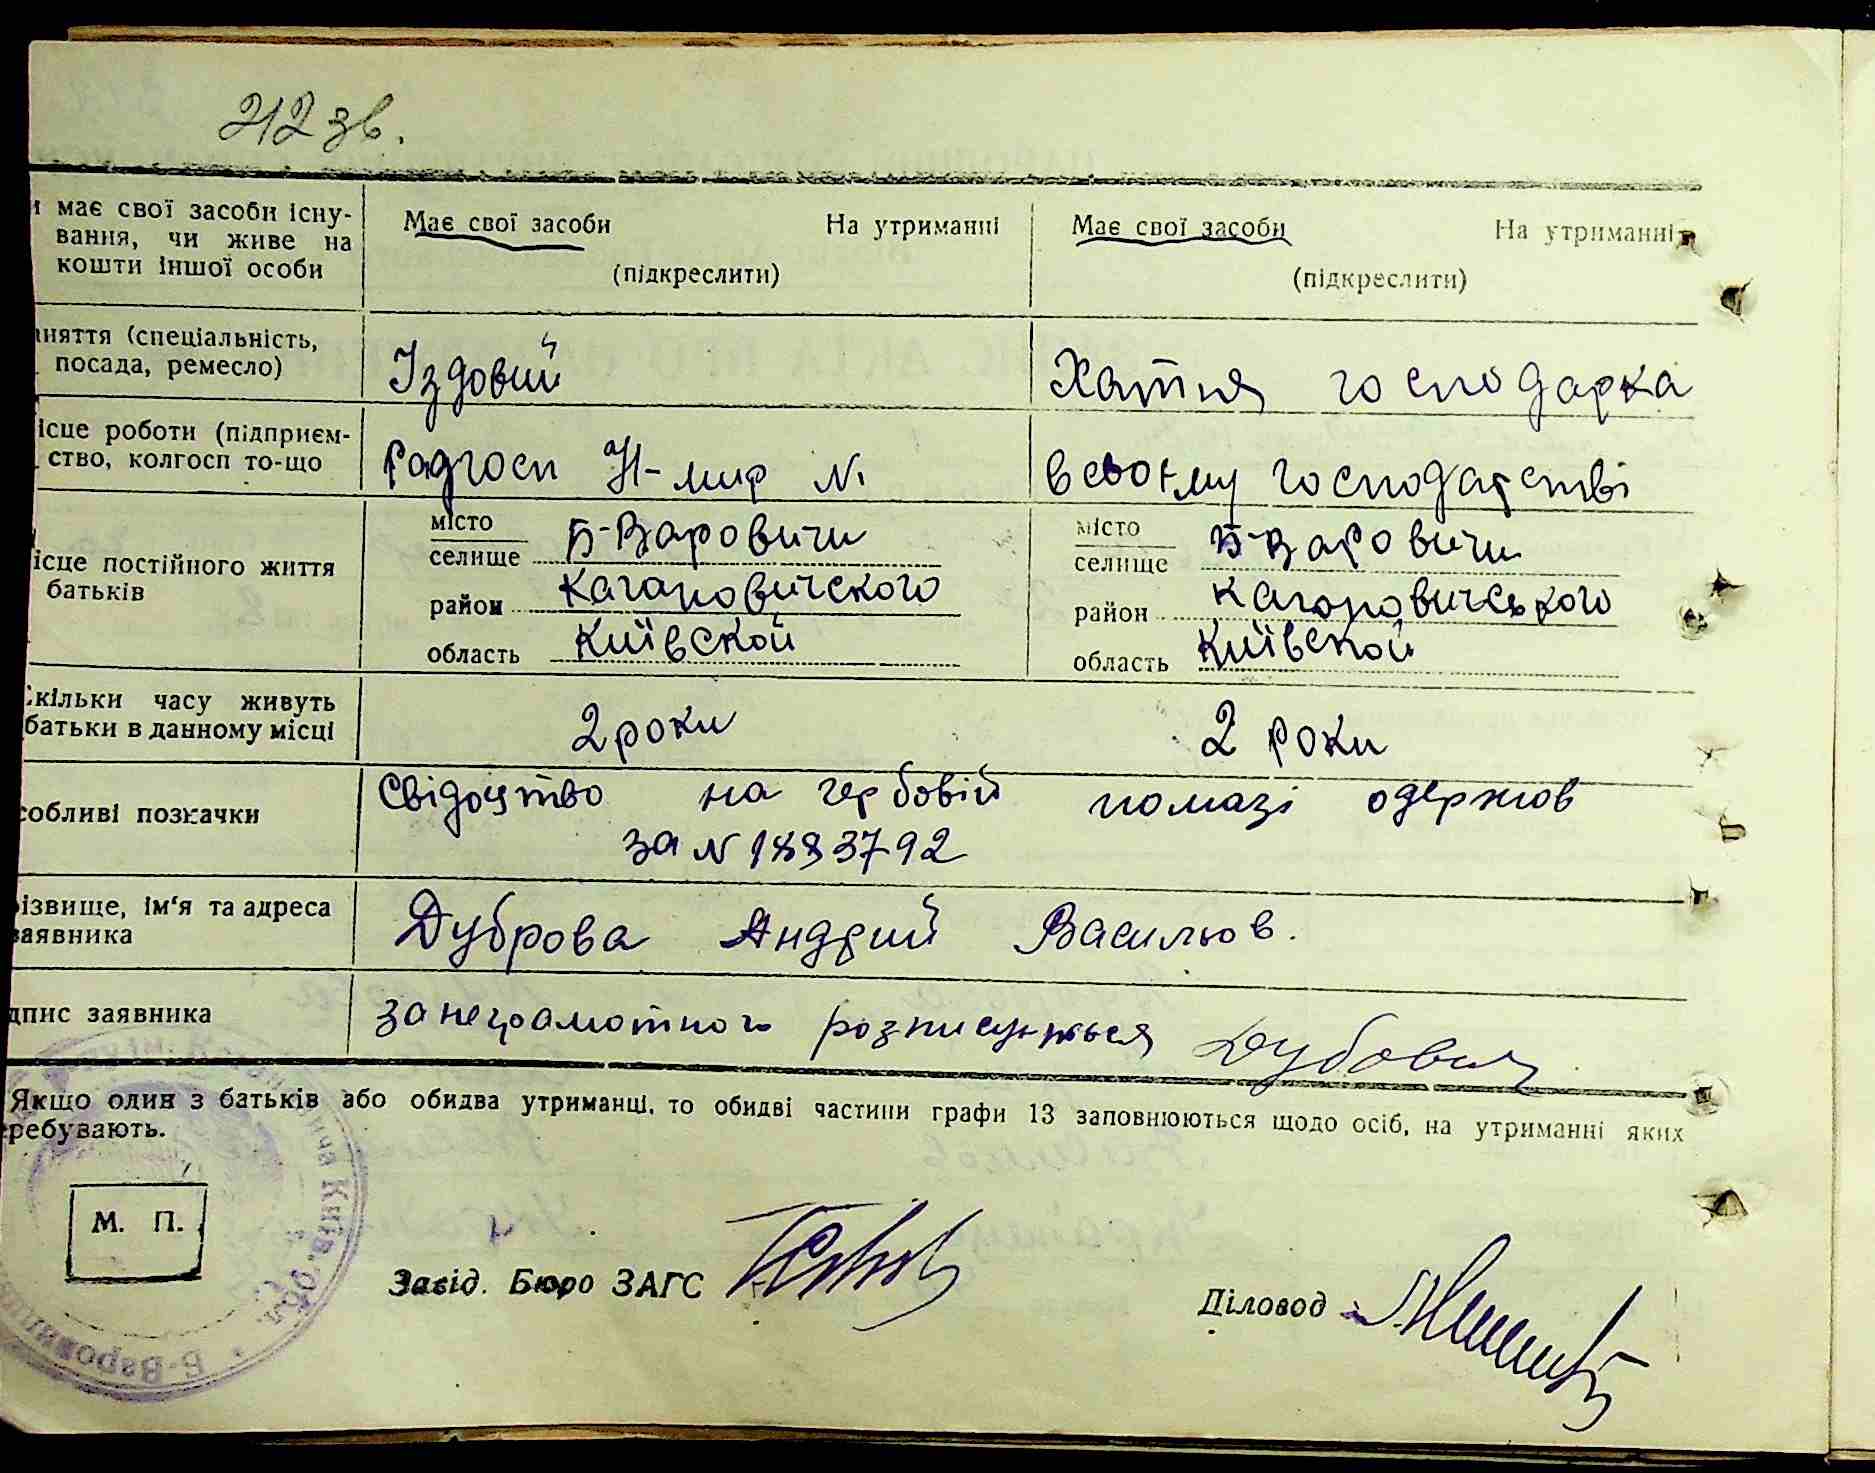 212 зв.
и має свої засоби існу- Має свої засоби На утриманні Має свої засоби На утриманні
вання, чи живе на
кошти іншої особи (підкреслити) (підкреслити)
няття (спеціальність,
посада, ремесло) Їздовий Хатня господарка
ісце роботи (підприєм-
ство, колгосп то-що Радгосп в своєму господарстві
місто місто
селище Б-Варовичи селище Б-Варовичи
ісце постійного життя
батьків район Кагановичского район Кагановичського
область Київской область Київской
кільки часу живуть
батьки в данному місці 2 роки 2 роки
Свідоцтво на гербовій помазі одержов
собливі позначки
за N 1883792
ізвище, ім'я та адреса
заявника Дуброва Андрий Васильов.
дпис заявника за неграмотного розписуеться Дубовик
Якщо один з батьків або обидва утриманці, то обидві частини графи 13 заповнюються щодо осіб, на утриманні яких
ребувають.
М. П.
Завід. Бюро ЗАГС
Діловод